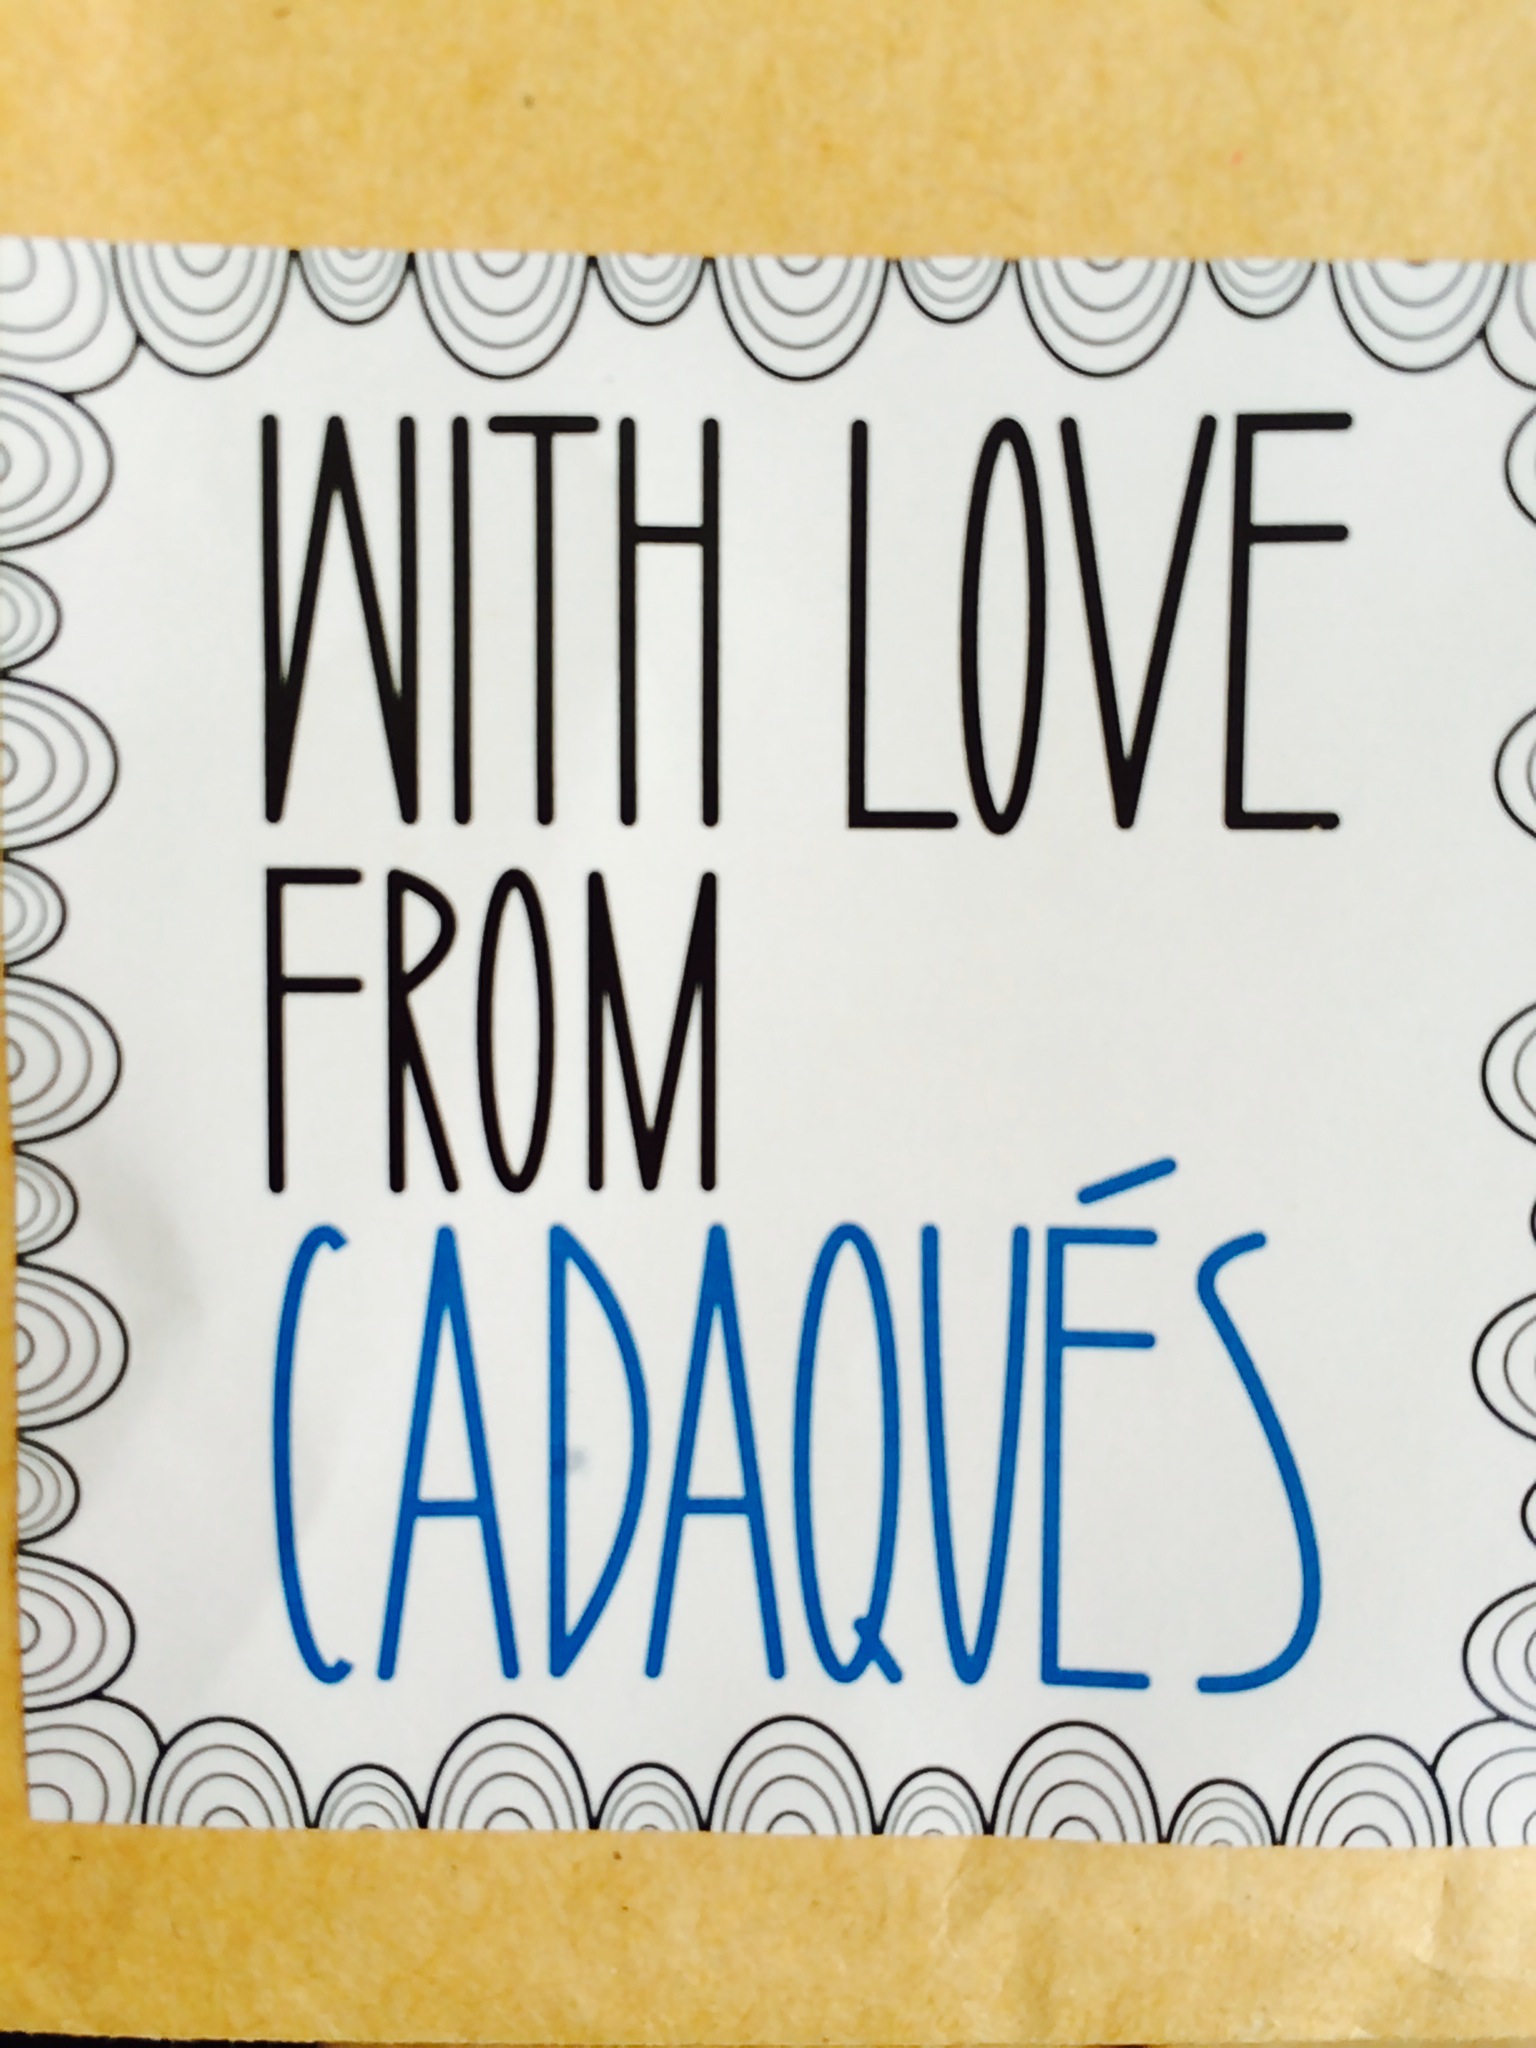 WITH LOVE
FROM
CADAQUÉS